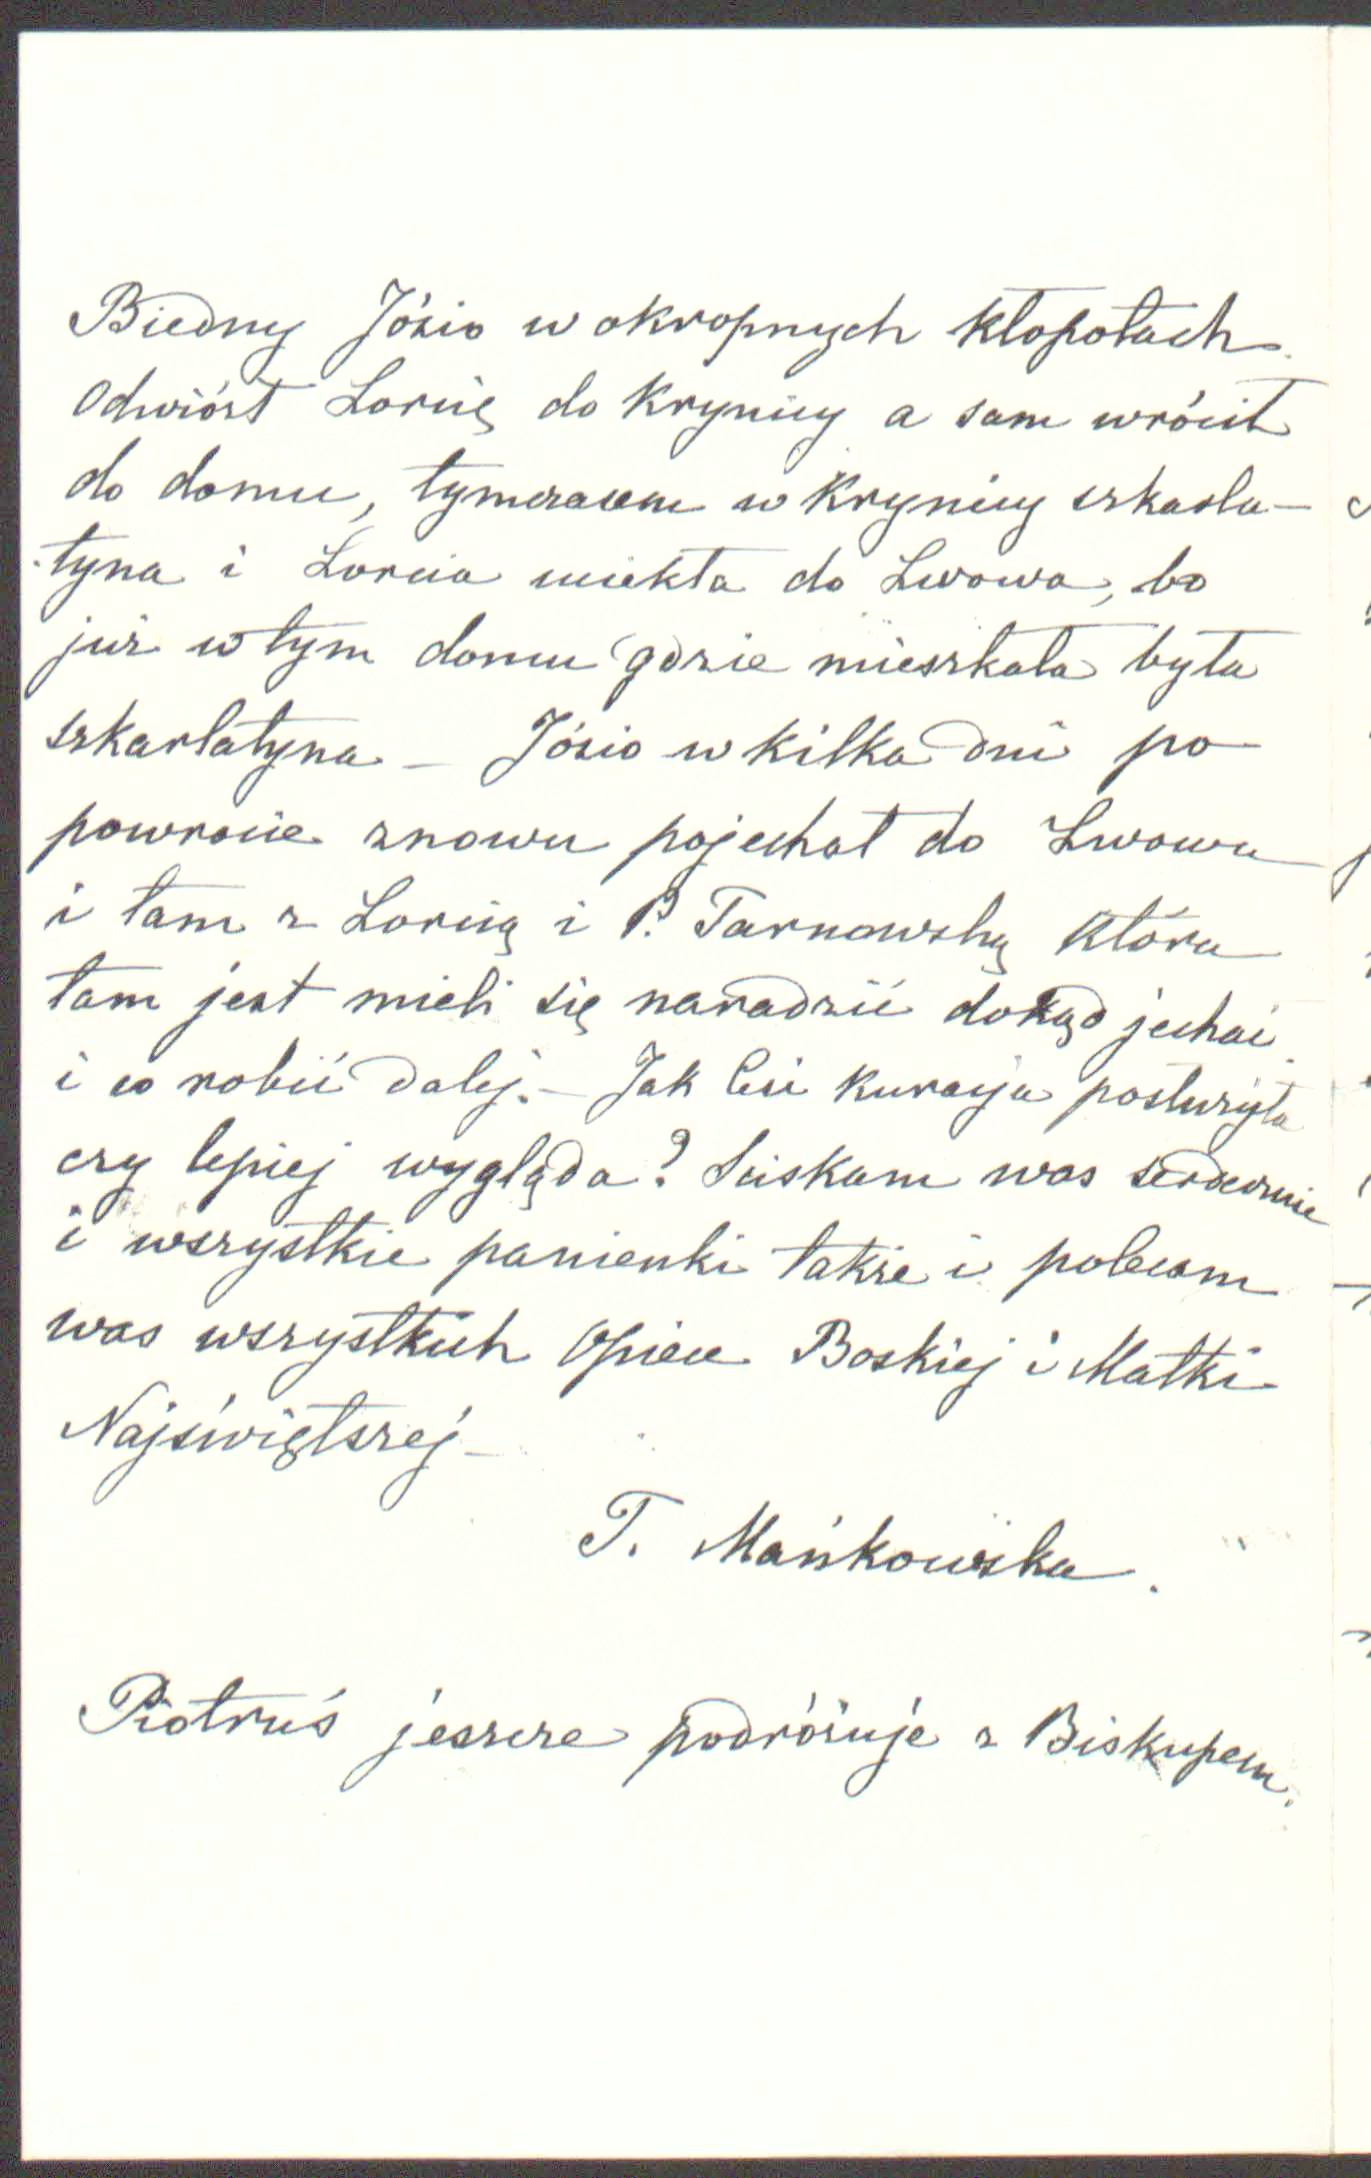 Biedny Józio w okropnych kłopotach.
Odwiózł Lorcię do Krynicy a sam wrócił
do domu, tymczasem w Krynicy szkasla-
tyna i Lorcia uciekła do Lwowa, bo
już w tym domu gdzie mieszkała była
szkarlatyna – Józio w kilka dni po
powrocie znowu pojechał do Lwowa
i tam z Lorcią i P. Tarnowską która
tam jest mieli się naradzić dokąd jechać
i co robić dalej. – Jak Ci kuracja posłużyła
czy lepiej wygląda? Ściskam was serdecznie
i wszystkie panienki także i polecam
was wszystkich Opiece Boskiej i Matki
Najświętszej –
T. Mańkowska.
Piotruś jeszcze podróżuje z Biskupem.